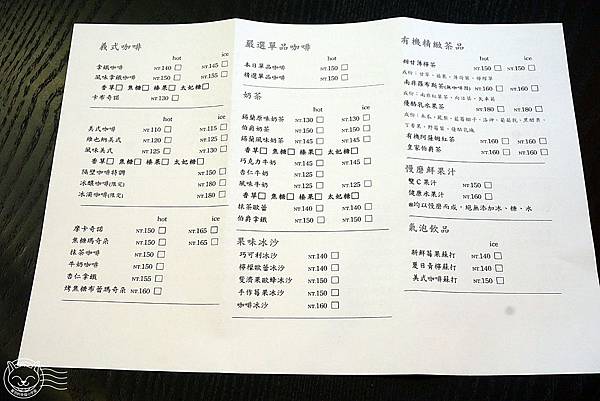 義式咖啡
hot ice
拿鐵咖啡 NT.140 □ NT.145 □
風味拿鐵咖啡 NT.150 □ NT.155 □
香草□ 焦糖□ 榛果□ 太妃糖□
卡布奇諾 NT.130 □
hot ice
美式咖啡 NT.110 □ NT.115 □
維也納美式 NT.120 □ NT.125 □
風味美式 NT.125 □ NT.130 □
香草□ 焦糖□ 榛果□ 太妃糖□
隔壁咖啡特調 NT.150 □
冰釀咖啡(限定) NT.180 □
冰滴咖啡(限定) NT.180 □
hot ice
摩卡奇諾 NT.150 □ NT.165 □
焦糖瑪奇朵 NT.150 □ NT.165 □
抹茶咖啡 NT.150 □
牛奶咖啡 NT.150 □
杏仁拿鐵 NT.155 □
烤焦糖布蕾瑪奇朵 NT.160 □
嚴選單品咖啡
hot
本日單品咖啡 NT.150 □
精選單品咖啡 NT.150 □
奶茶
hot ice
錫蘭原味奶茶 NT.130 □ NT.130 □
伯爵奶茶 NT.150 □ NT.150 □
錫蘭風味奶茶 NT.145 □ NT.145 □
香草□ 焦糖□ 榛果□ 太妃糖□
巧克力牛奶 NT.145 □ NT.145 □
杏仁牛奶 NT.125 □
風味牛奶 NT.125 □ NT.125 □
香草□ 焦糖□ 榛果□ 太妃糖□
抹茶歐蕾 NT.140 □ NT.140 □
伯爵拿鐵 NT.150 □ NT.150 □
果味冰沙
ice
巧可利冰沙 NT.140 □
檸檬歐蕾冰沙 NT.140 □
雙濃果歐蜂冰沙 NT.150 □
手作莓果冰沙 NT.150 □
咖啡冰沙 NT.160 □
有機精緻茶品
hot ice
甜甘薄檸茶 NT.150 □ NT.150 □
成份：甘草、蘋果、薄荷葉、檸檬草
南非蘿布甄茶(無咖啡因) NT.160 □ NT.160 □
優酪乳水果茶 NT.180 □ NT.180 □
有機阿薩姆紅茶 NT.160 □ NT.160 □
皇家伯爵茶 NT.160 □ NT.160 □
慢磨鮮果汁
雙C果汁 NT.150 □
健康水果汁 NT.160 □
※均以慢磨而成，絕無添加冰、糖、水
氣泡飲品
ice
新鮮莓果蘇打 NT.140 □
夏日青檸蘇打 NT.140 □
美式咖啡蘇打 NT.150 □